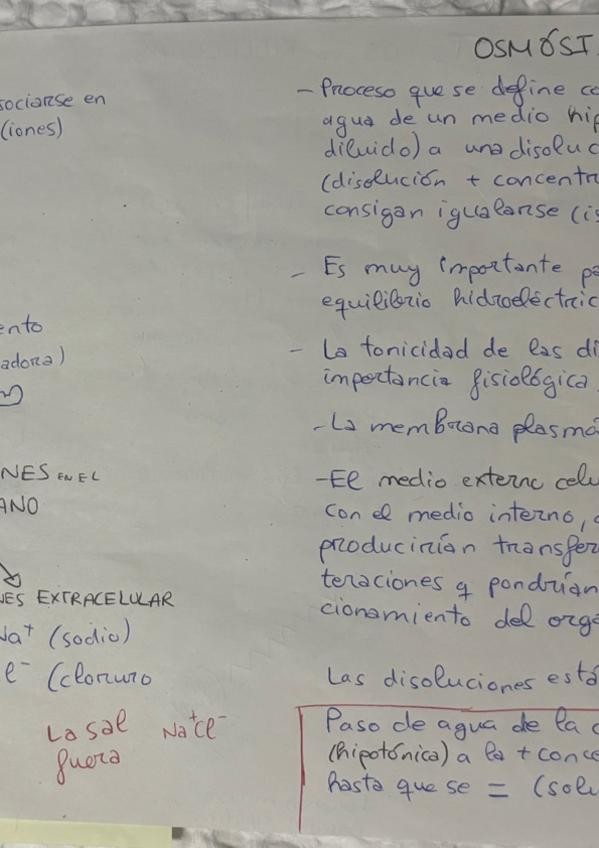 sociarse en
(iones)
ento
adora)
NES EN EL
ANO
NES EXTRACELULAR
Na+ (sodio)
Cl- (cloruro
La sal Na+Cl-
fuera
OSMÓSI
- Proceso que se define co
agua de un medio hip
diluido) a una disoluc
(disolución + concentra
consigan igualarse (is
- Es muy importante pa
equilibrio hidroeléctric
- La tonicidad de las di
importancia fisiológica
- La membrana plasmá
- El medio externo celu
con el medio interno,
producirían transfer
teraciones q pondrían
cionamiento del orga
Las disoluciones está
Paso de agua de la
(hipotónica) a la + conce
hasta que se = (solu